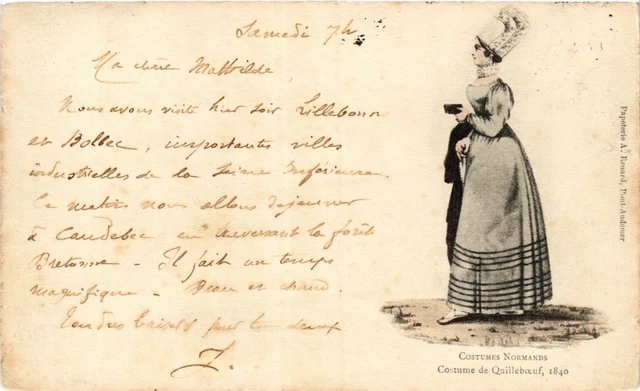 Samedi 7h
Ma chère Mathilde,
Nous avons visité hier soir Lillebonne
et Bolbec, importantes villes
industrielles de la Seine Inférieure.
Ce matin nous allons déjeuner
à Caudebec en traversant la forêt
Bretonne - Il fait un temps
magnifique - Beau et chaud.
Tendres baisers pour
J.
Papeterie A. Renard, Pont-Audemer
COSTUMES NORMANDS
Costume de Quillebœuf, 1840